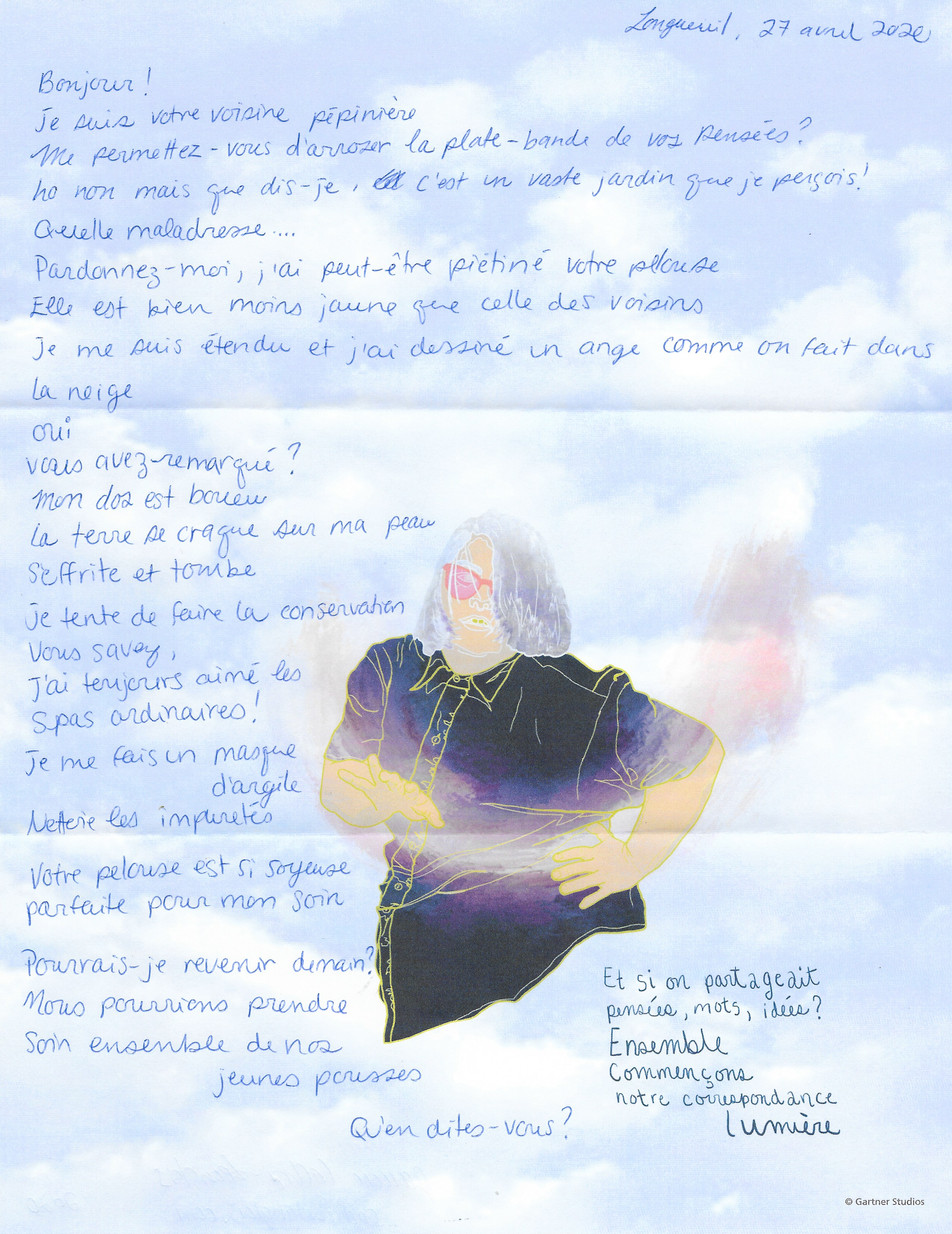 Longueuil, 27 avril 2020
Bonjour !
Je suis votre voisine pépinière
Me permettez-vous d'arroser la plate-bande de vos pensées?
ho non mais que dis-je, c'est un vaste jardin que je perçois!
Quelle maladresse...
Pardonnez-moi, j'ai peut-être piétiné votre pelouse
Elle est bien moins jaune que celle des voisins
Je me suis étendu et j'ai dessiné un ange comme on fait dans
la neige
oui
vous avez-remarqué ?
Mon dos est boueux
La terre se craque sur ma peau
S'effrite et tombe
Je tente de faire la conservation
Vous savez,
J'ai toujours aimé les
Spas ordinaires!
Je me fais un masque
d'argile
Netteie les impuretés
Votre pelouse est si soyeuse
parfaite pour mon soin
Pourrais-je revenir demain?
Nous pourrions prendre
Soin ensemble de nos
jeunes pousses
Qu'en dites-vous?
Et si on partageait
pensées, mots, idées?
Ensemble
Commençons
notre correspondance
lumière
© Gartner Studios